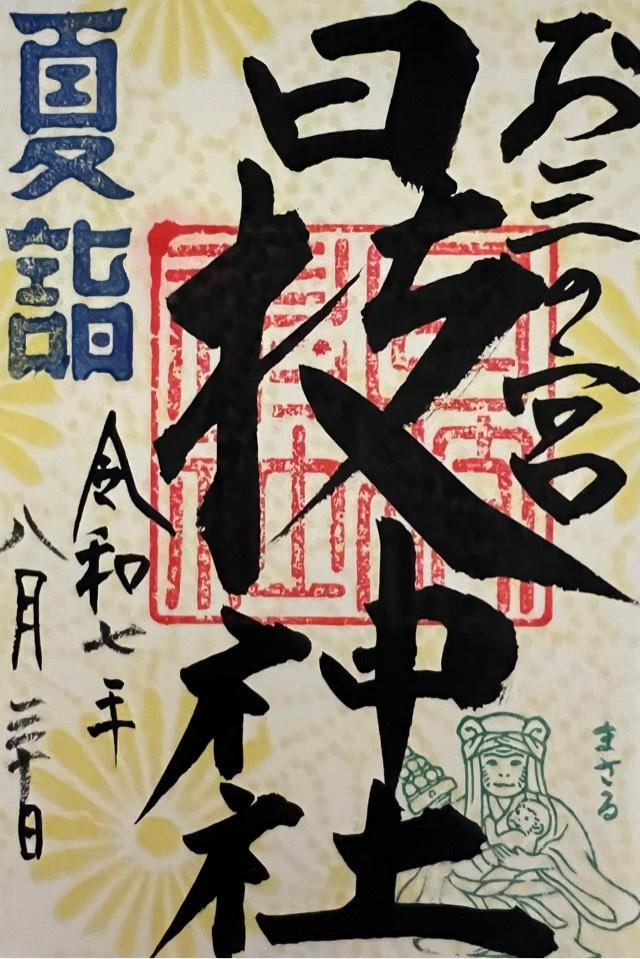 お三の宮
日枝神社
夏詣
令和七年
八月三十日
まさる